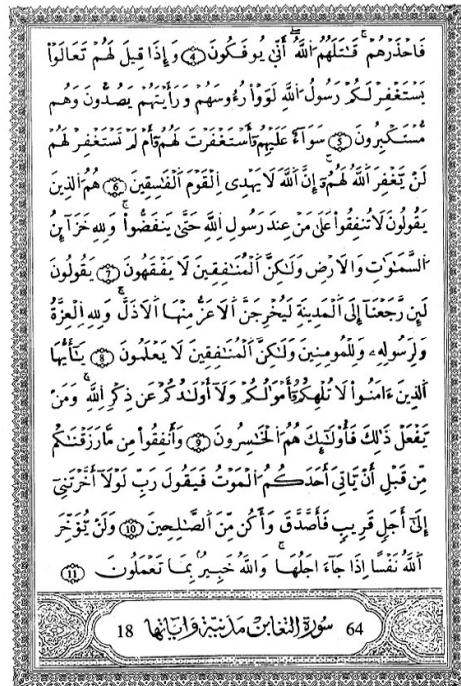 فَاحْذَرْهُمْ قَٰتَلَهُمُ اَ۬للَّهُ أَنّ۪يٰ يُوفَكُونَ ④ وَإِذَا قِيلَ لَهُمْ تَعَالَوْاْ
يَسْتَغْفِرْ لَكُمْ رَسُولُ اُ۬للَّهِ لَوَوْاْ رُءُوسَهُمْ وَرَأَيْتَهُمْ يَصُدُّونَ وَهُم
مُّسْتَكْبِرُونَ ⑤ سَوَآءٌ عَلَيْهِمُۥٓ أَسْتَغْفَرْتَ لَهُمُۥٓ أَمْ لَمْ تَسْتَغْفِرْ لَهُمْ
لَنْ يَّغْفِرَ اَ۬للَّهُ لَهُمُۥٓ إِنَّ اَ۬للَّهَ لَا يَهْدِى اِ۬لْقَوْمَ اَ۬لْفَٰسِقِينَ ⑥ هُمُ اُ۬لذِينَ
يَقُولُونَ لَا تُنفِقُواْ عَلَىٰ مَنْ عِندَ رَسُولِ اِ۬للَّهِ حَتَّىٰ يَنفَضُّواْ وَلِلهِ خَزَآئِنُ
اُ۬لسَّمَٰوَٰتِ وَالَارْضِ وَلَٰكِنَّ اَ۬لْمُنَٰفِقِينَ لَا يَفْقَهُونَ ⑦ يَقُولُونَ
لَئِن رَّجَعْنَآ إِلَى اَ۬لْمَدِينَةِ لَيُخْرِجَنَّ اَ۬لَاعَزُّ مِنْهَا اَ۬لَاذَلَّ وَلِلهِ اِ۬لْعِزَّةُ
وَلِرَسُولِهِۦ وَلِلْمُومِنِينَ وَلَٰكِنَّ اَ۬لْمُنَٰفِقِينَ لَا يَعْلَمُونَ ⑧ يَٰٓأَيُّهَا
اَ۬لذِينَ ءَامَنُواْ لَا تُلْهِكُمُۥٓ أَمْوَٰلُكُمْ وَلَآ أَوْلَٰدُكُمْ عَن ذِكْرِ اِ۬للَّهِ وَمَنْ
يَّفْعَلْ ذَٰلِكَ فَأُوْلَٰٓئِكَ هُمُ اُ۬لْخَٰسِرُونَ ⑨ وَأَنفِقُواْ مِن مَّا رَزَقْنَٰكُم
مِّن قَبْلِ أَنْ يَّاتِىَ أَحَدَكُمُ اُ۬لْمَوْتُ فَيَقُولَ رَبِّ لَوْلَآ أَخَّرْتَنِىٓ
إِلَىٰٓ أَجَلٍ قَرِيبٍ فَأَصَّدَّقَ وَأَكُن مِّنَ اَ۬لصَّٰلِحِينَ ⑩ وَلَنْ يُّوَخِّرَ
اَ۬للَّهُ نَفْسًا اِذَا جَآءَ اجَلُهَا وَاللَّهُ خَبِيرٌۢ بِمَا تَعْمَلُونَ ⑪
64 سورة التغابن مدنية وآياتها 18